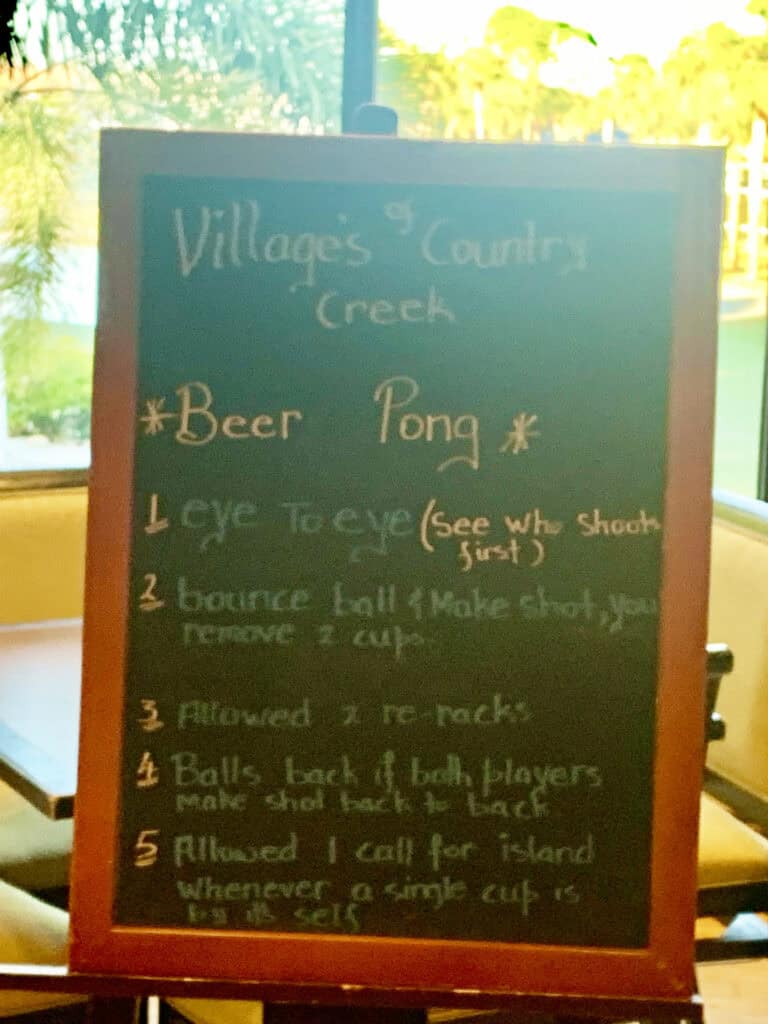 Village's of Country
Creek
*Beer Pong *
1 eye To eye (See who Shoots
first)
2 bounce ball & Make shot, you
remove 2 cups.
3 Allowed 2 re-racks
4 Balls back if both players
make shot back to back
5 Allowed 1 call for island
whenever a single cup is
by its self